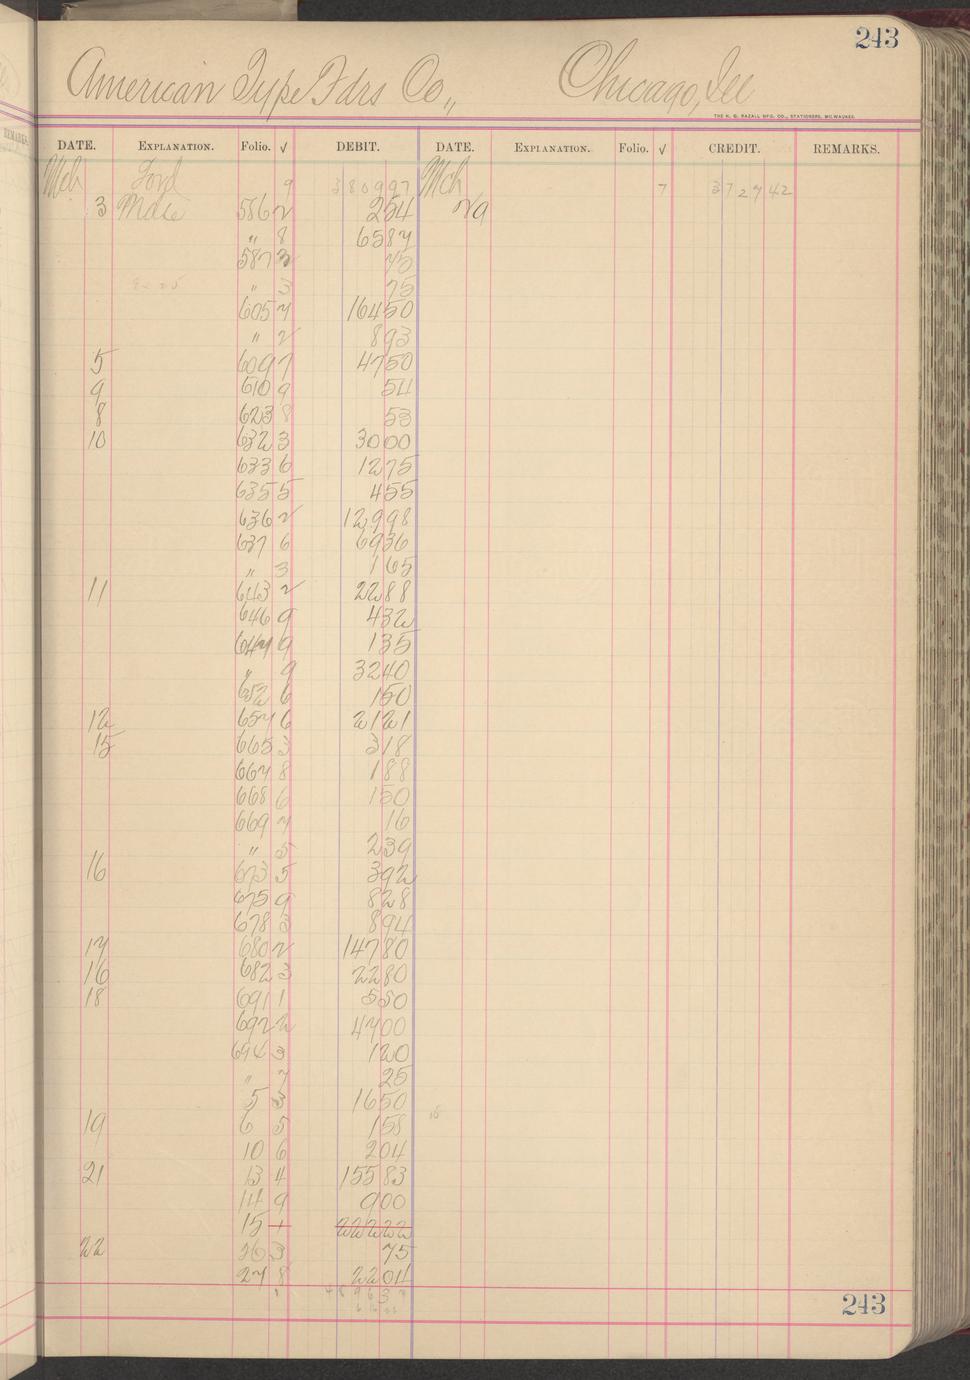 243
American Type Fdrs Co., Chicago, Ill
THE H. G. RAZALL MFG. CO., STATIONERS, MILWAUKEE.
DATE. EXPLANATION. Folio. √ DEBIT. DATE. EXPLANATION. Folio. √ CREDIT. REMARKS.
Mch Ford 9 380997 Mch 7 372742
3 Mdse 586 2 254
" 8 6587
587 3 45
" 3 75
605 7 16450
" 2 893
5 609 7 4750
9 610 9 54
8 623 8 53
10 632 3 3000
633 6 1275
635 5 455
636 2 12998
637 6 6936
" 3 165
11 643 2 2288
646 9 432
647 9 135
" 9 3240
652 6 150
12 657 6 2121
15 665 3 318
667 8 188
668 6 150
669 7 16
" 5 239
16 673 5 392
675 9 828
678 3 894
17 680 2 14780
16 682 3 2280
18 691 1 550
692 2 4700
694 3 120
" 7 25
5 3 1650
19 6 5 158
10 6 204
21 13 4 15583
14 9 900
15 1 22222
22 26 3 75
27 8 2204
243